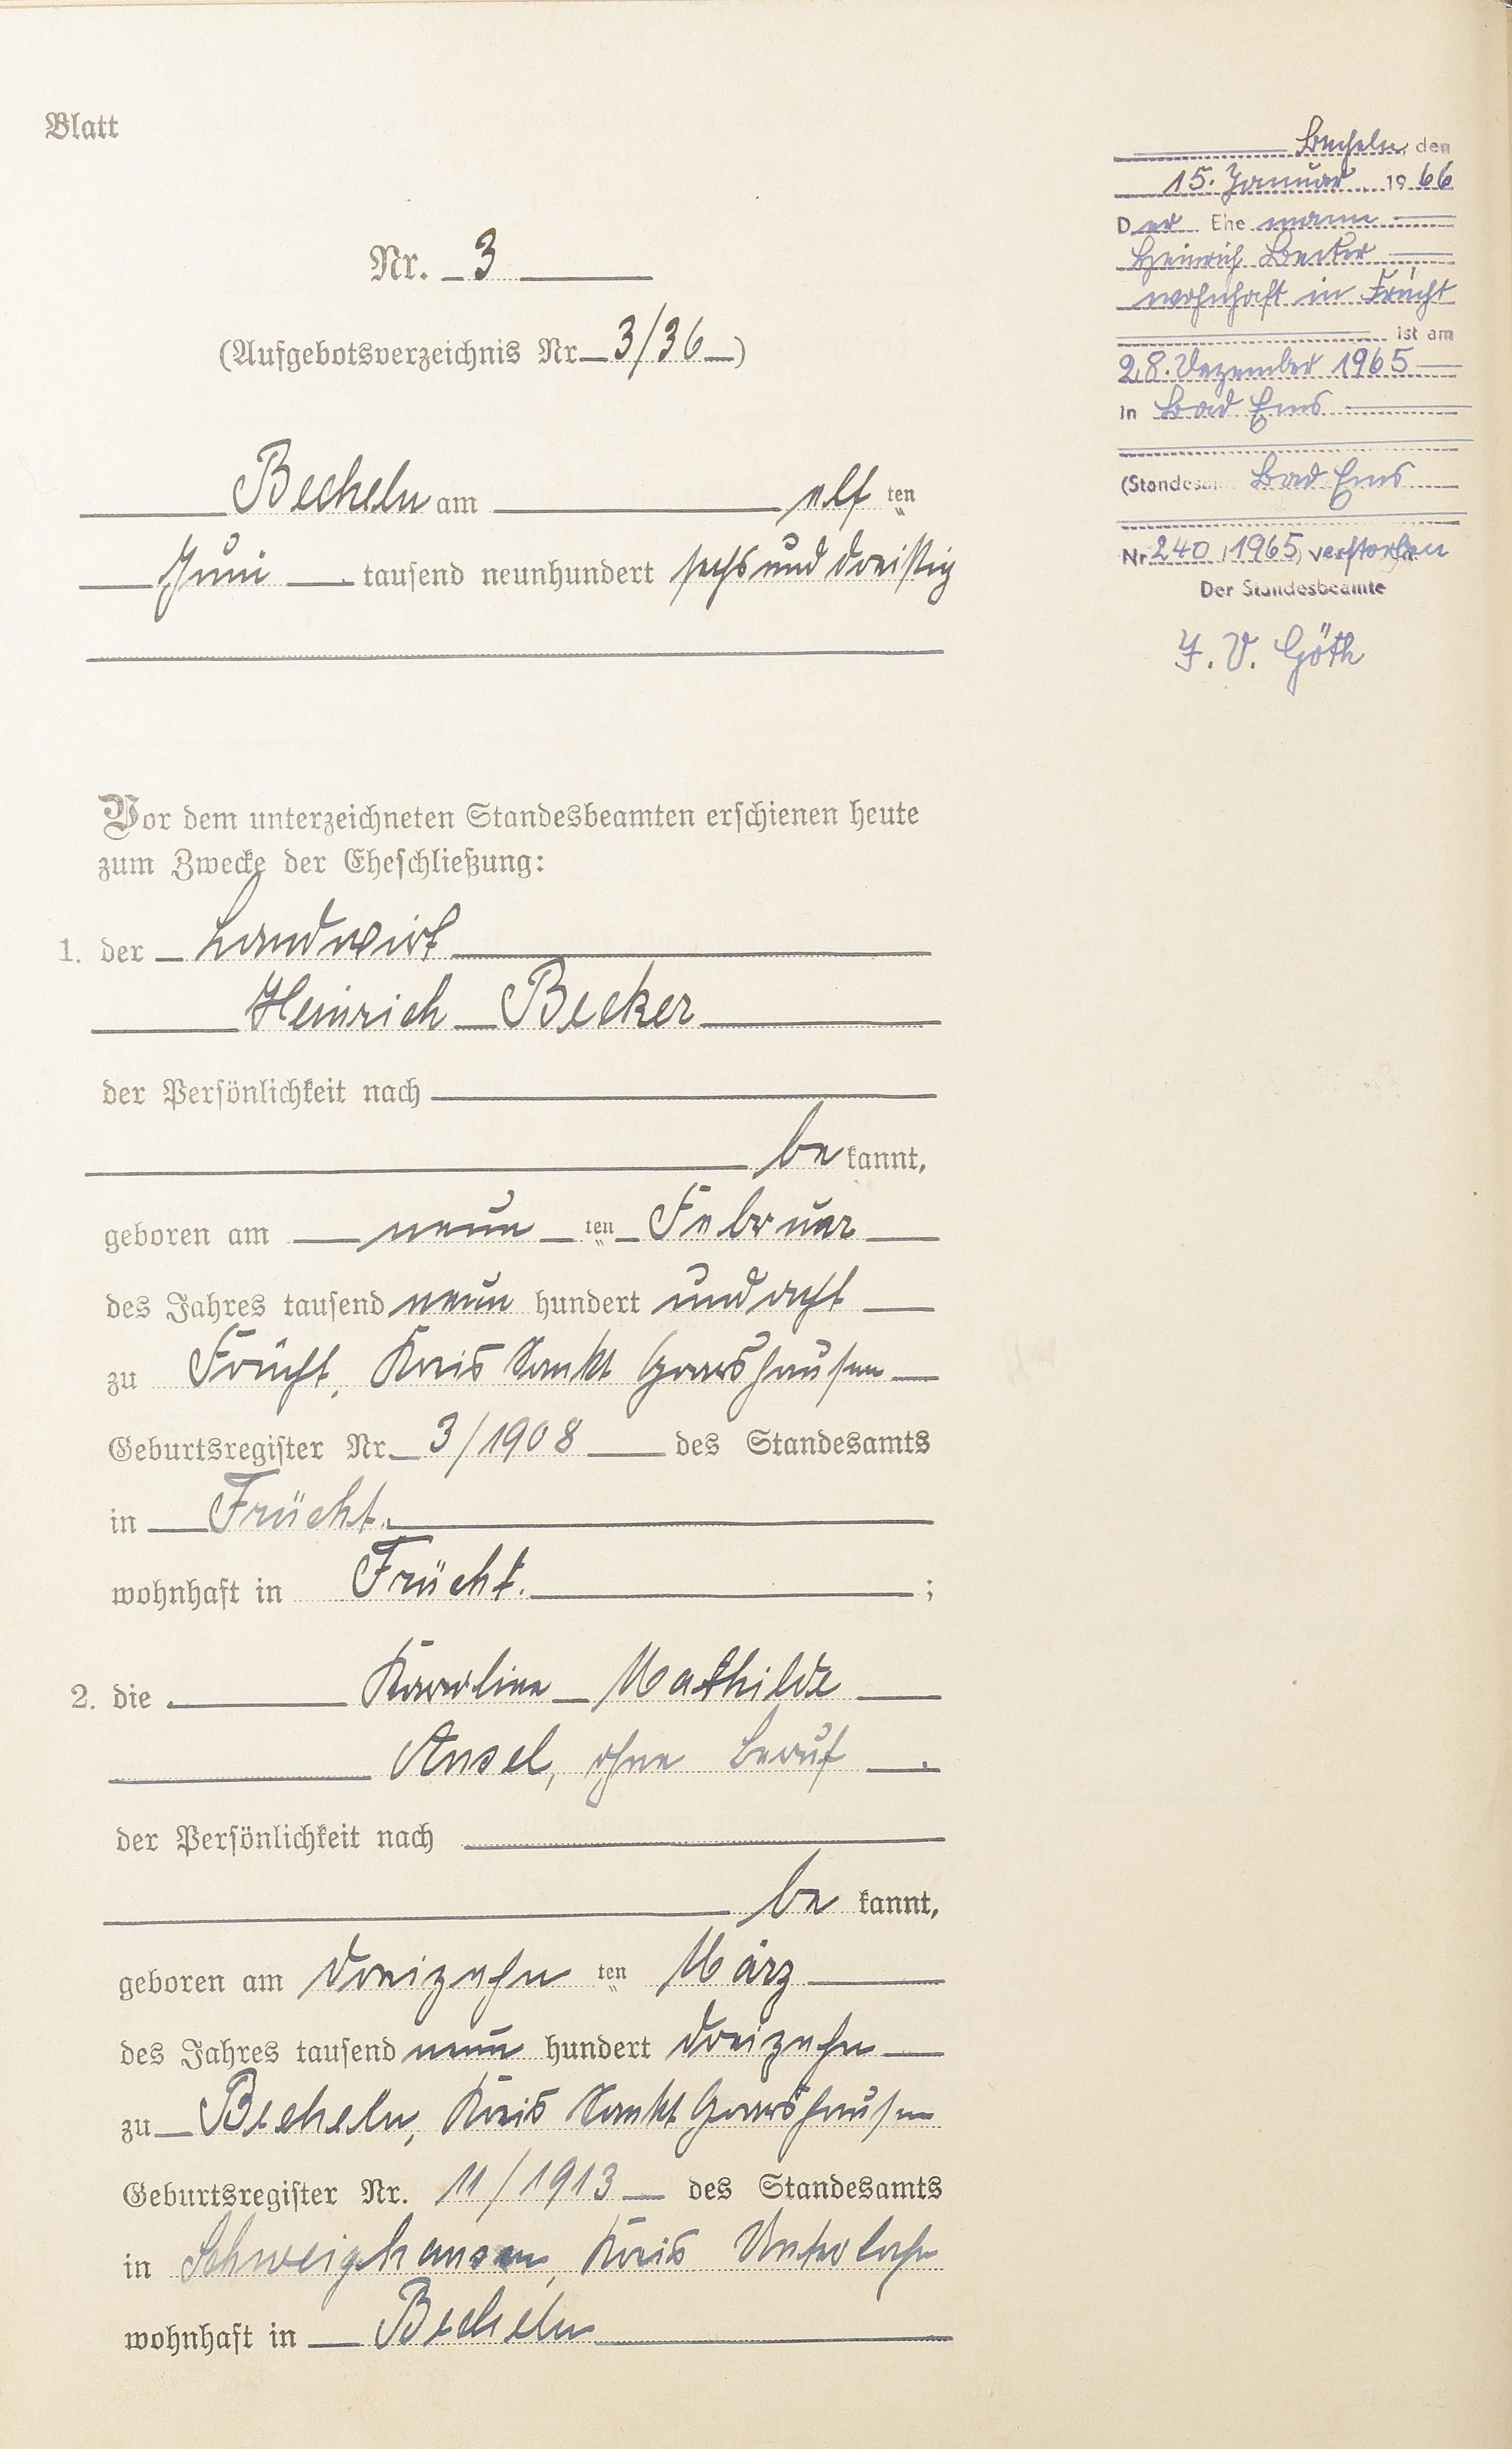 Blatt
Nr. 3
(Aufgebotsverzeichnis Nr 3/36)
Becheln am elf ten
Juni tausend neunhundert sechsunddreißig
Becheln, den
15. Januar 1966
Der Ehemann
Heinrich Becker
wohnhaft in Frücht
ist am
28. Dezember 1965
in Bad Ems
(Standesamt Bad Ems
Nr 240/1965) verstorben
Der Standesbeamte
I. V. Göth
Vor dem unterzeichneten Standesbeamten erschienen heute
zum Zwecke der Eheschließung:
1. der Landwirt
Heinrich Becker
der Persönlichkeit nach
be kannt,
geboren am neun ten Februar
des Jahres tausend neun hundert und acht
zu Frücht, Kreis Sankt Goarshausen
Geburtsregister Nr. 3/1908 des Standesamts
in Frücht.
wohnhaft in Frücht. ;
2. die Karoline Mathilde
Ansel, ohne Beruf
der Persönlichkeit nach
be kannt,
geboren am dreizehn ten März
des Jahres tausend neun hundert dreizehn
zu Becheln, Kreis Sankt Goarshausen
Geburtsregister Nr. 11/1913 des Standesamts
in Schweighausen, Kreis Unterlahn
wohnhaft in Becheln